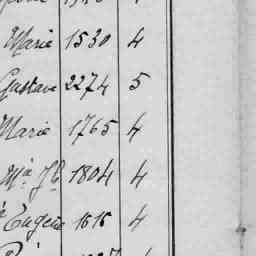 Marie 1530 4
Gustave 2274 5
Marie 1765 4
Mia Jh 1804 4
Eugène 1616 4